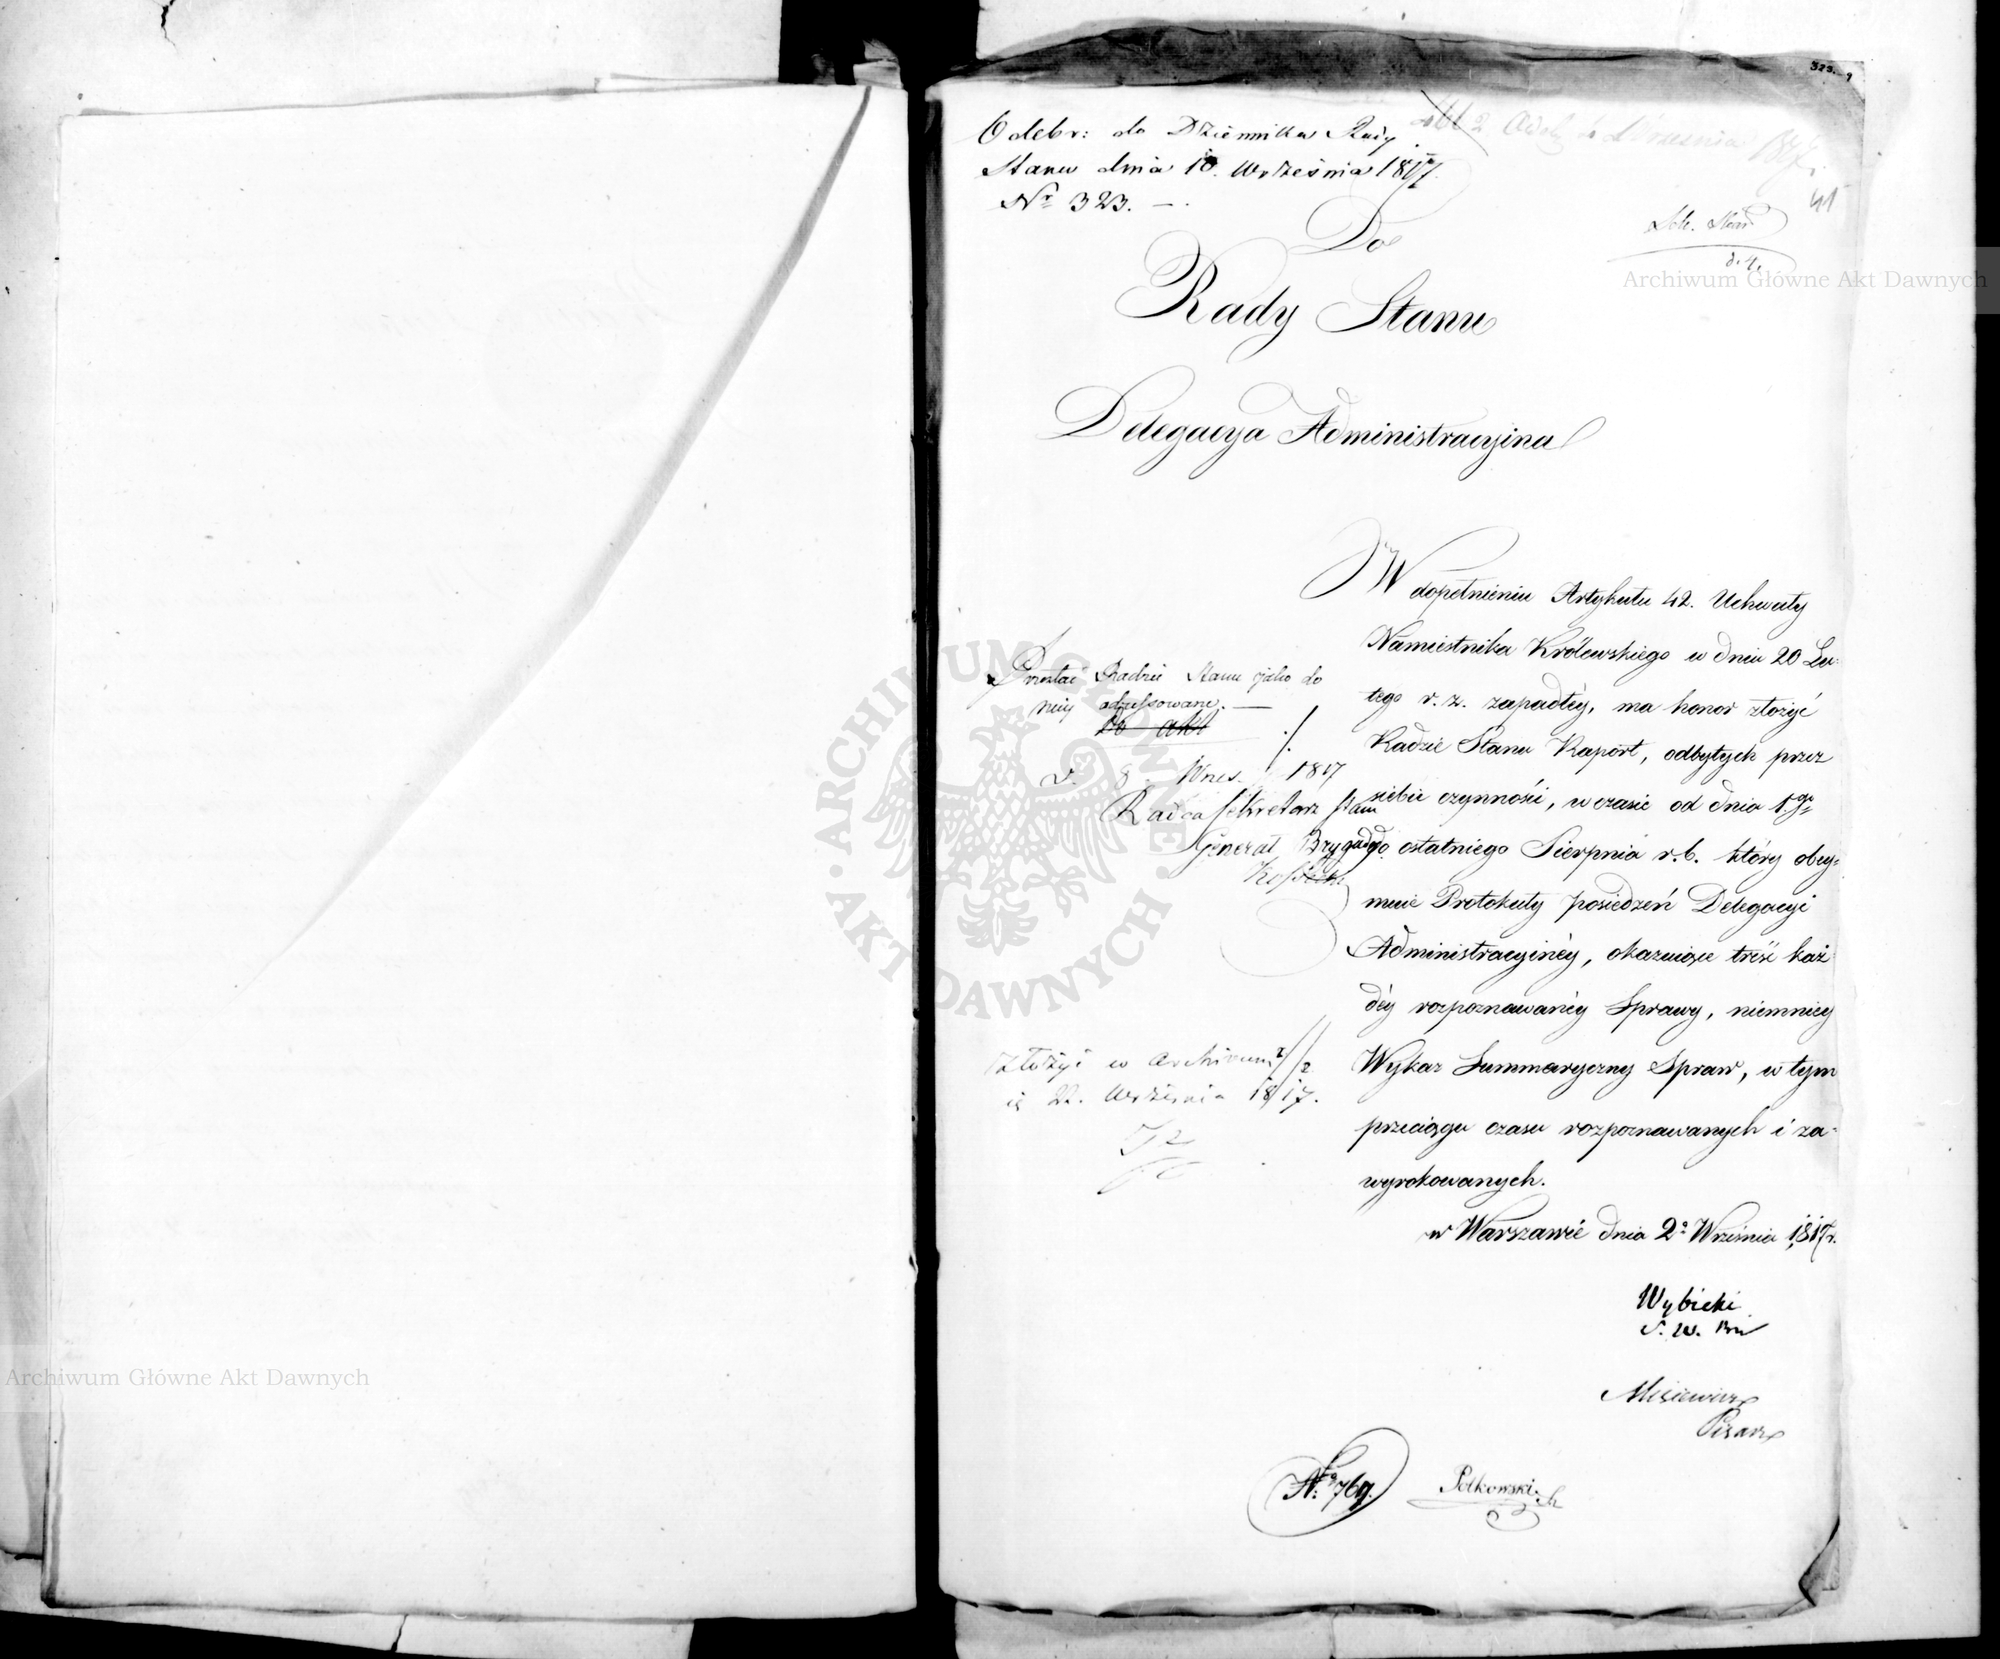 323. 9
Odebr: do Dziennika Rady
Stanu dnia 10. Września 1817.
Nr 323. —.
Września 1817.
41
Do
Rady Stanu
Delegacya Administracyina
W dopełnieniu Artykułu 42. Uchwały
Namiestnika Królewskiego w dniu 20 Lu-
tego r. z. zapadłéy, ma honor złożyć
Radzie Stanu Raport, odbytych przez
siebie czynności, w czasie od dnia 1go
do ostatniego Sierpnia r. b. który obey-
muie Protokuły posiedzeń Delegacyi
Administracyinéy, okazuiące treść każ-
déy rozpoznawanéy Sprawy, niemniey
Wykaz Summaryczny Spraw, w tym
przeciągu czasu rozpoznawanych i za-
wyrokowanych.
w Warszawie dnia 2o Września 1817r.
Przesłać Radzie Stanu jako do
niey adressowane. —
Do akt
d. 8. Wrześ. 1817
Radca Sekretarz Stanu
Generał Brygady
Kossecki
Złożyć w Archivum
d. 22. Września 1817.
Wybicki
S. W. Pr
Misiewicz
Pisarz
No 767.
Polkowski
Archiwum Główne Akt Dawnych
Archiwum Główne Akt Dawnych
ARCHIWUM GŁÓWNE
AKT DAWNYCH